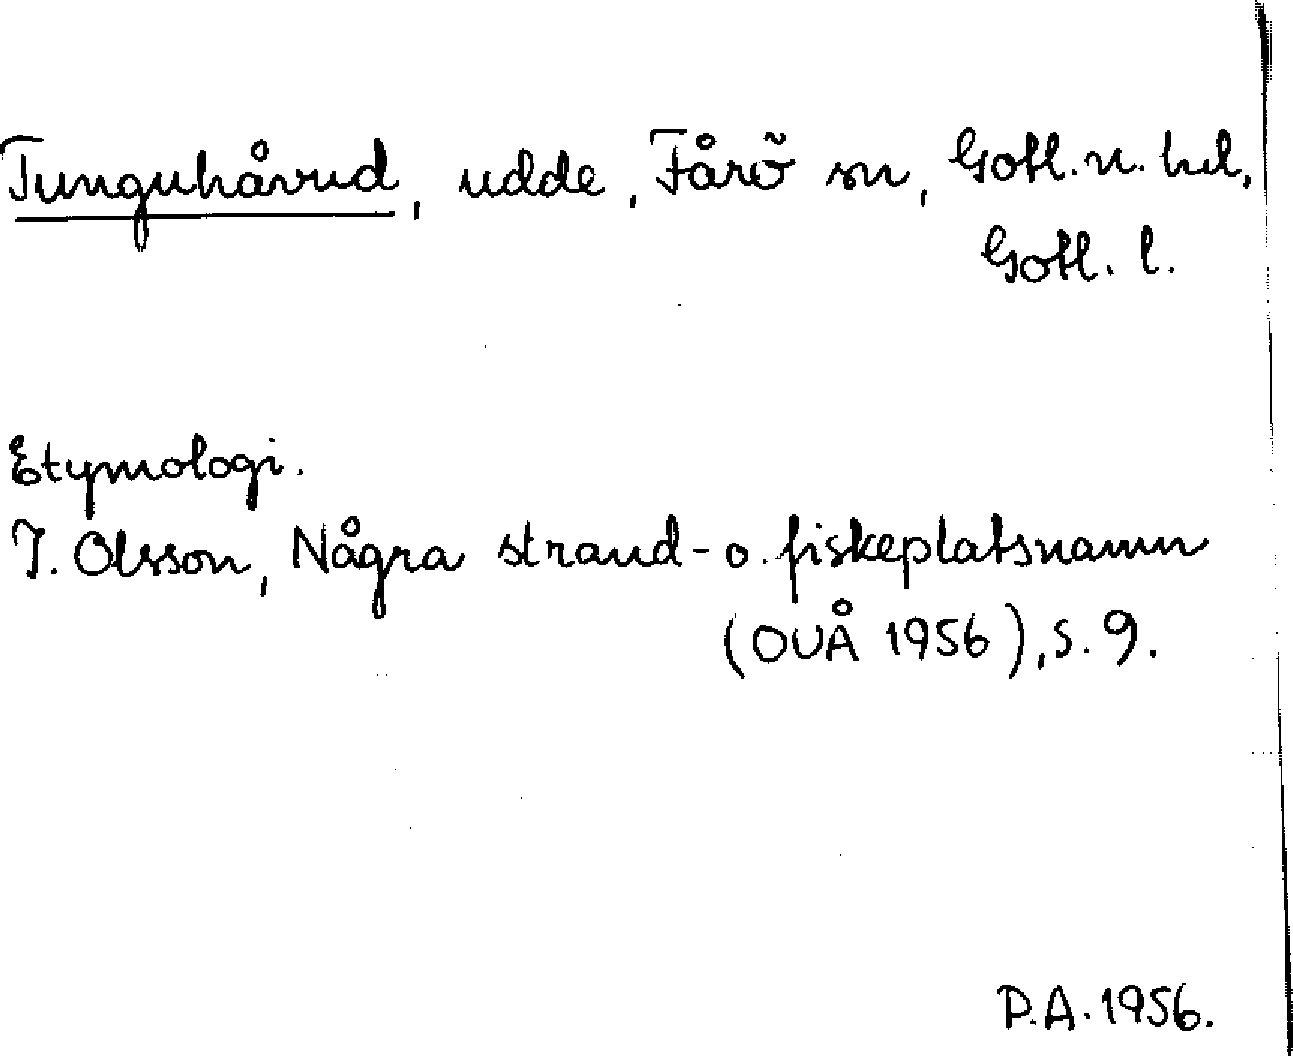 Tunguhåvud, udde, Fårö sn, Gotl. n. hd,
Gotl. l.
Etymologi.
I. Olsson, Några strand- o. fiskeplatsnamn
(OUÅ 1956), s. 9.
P.A. 1956.